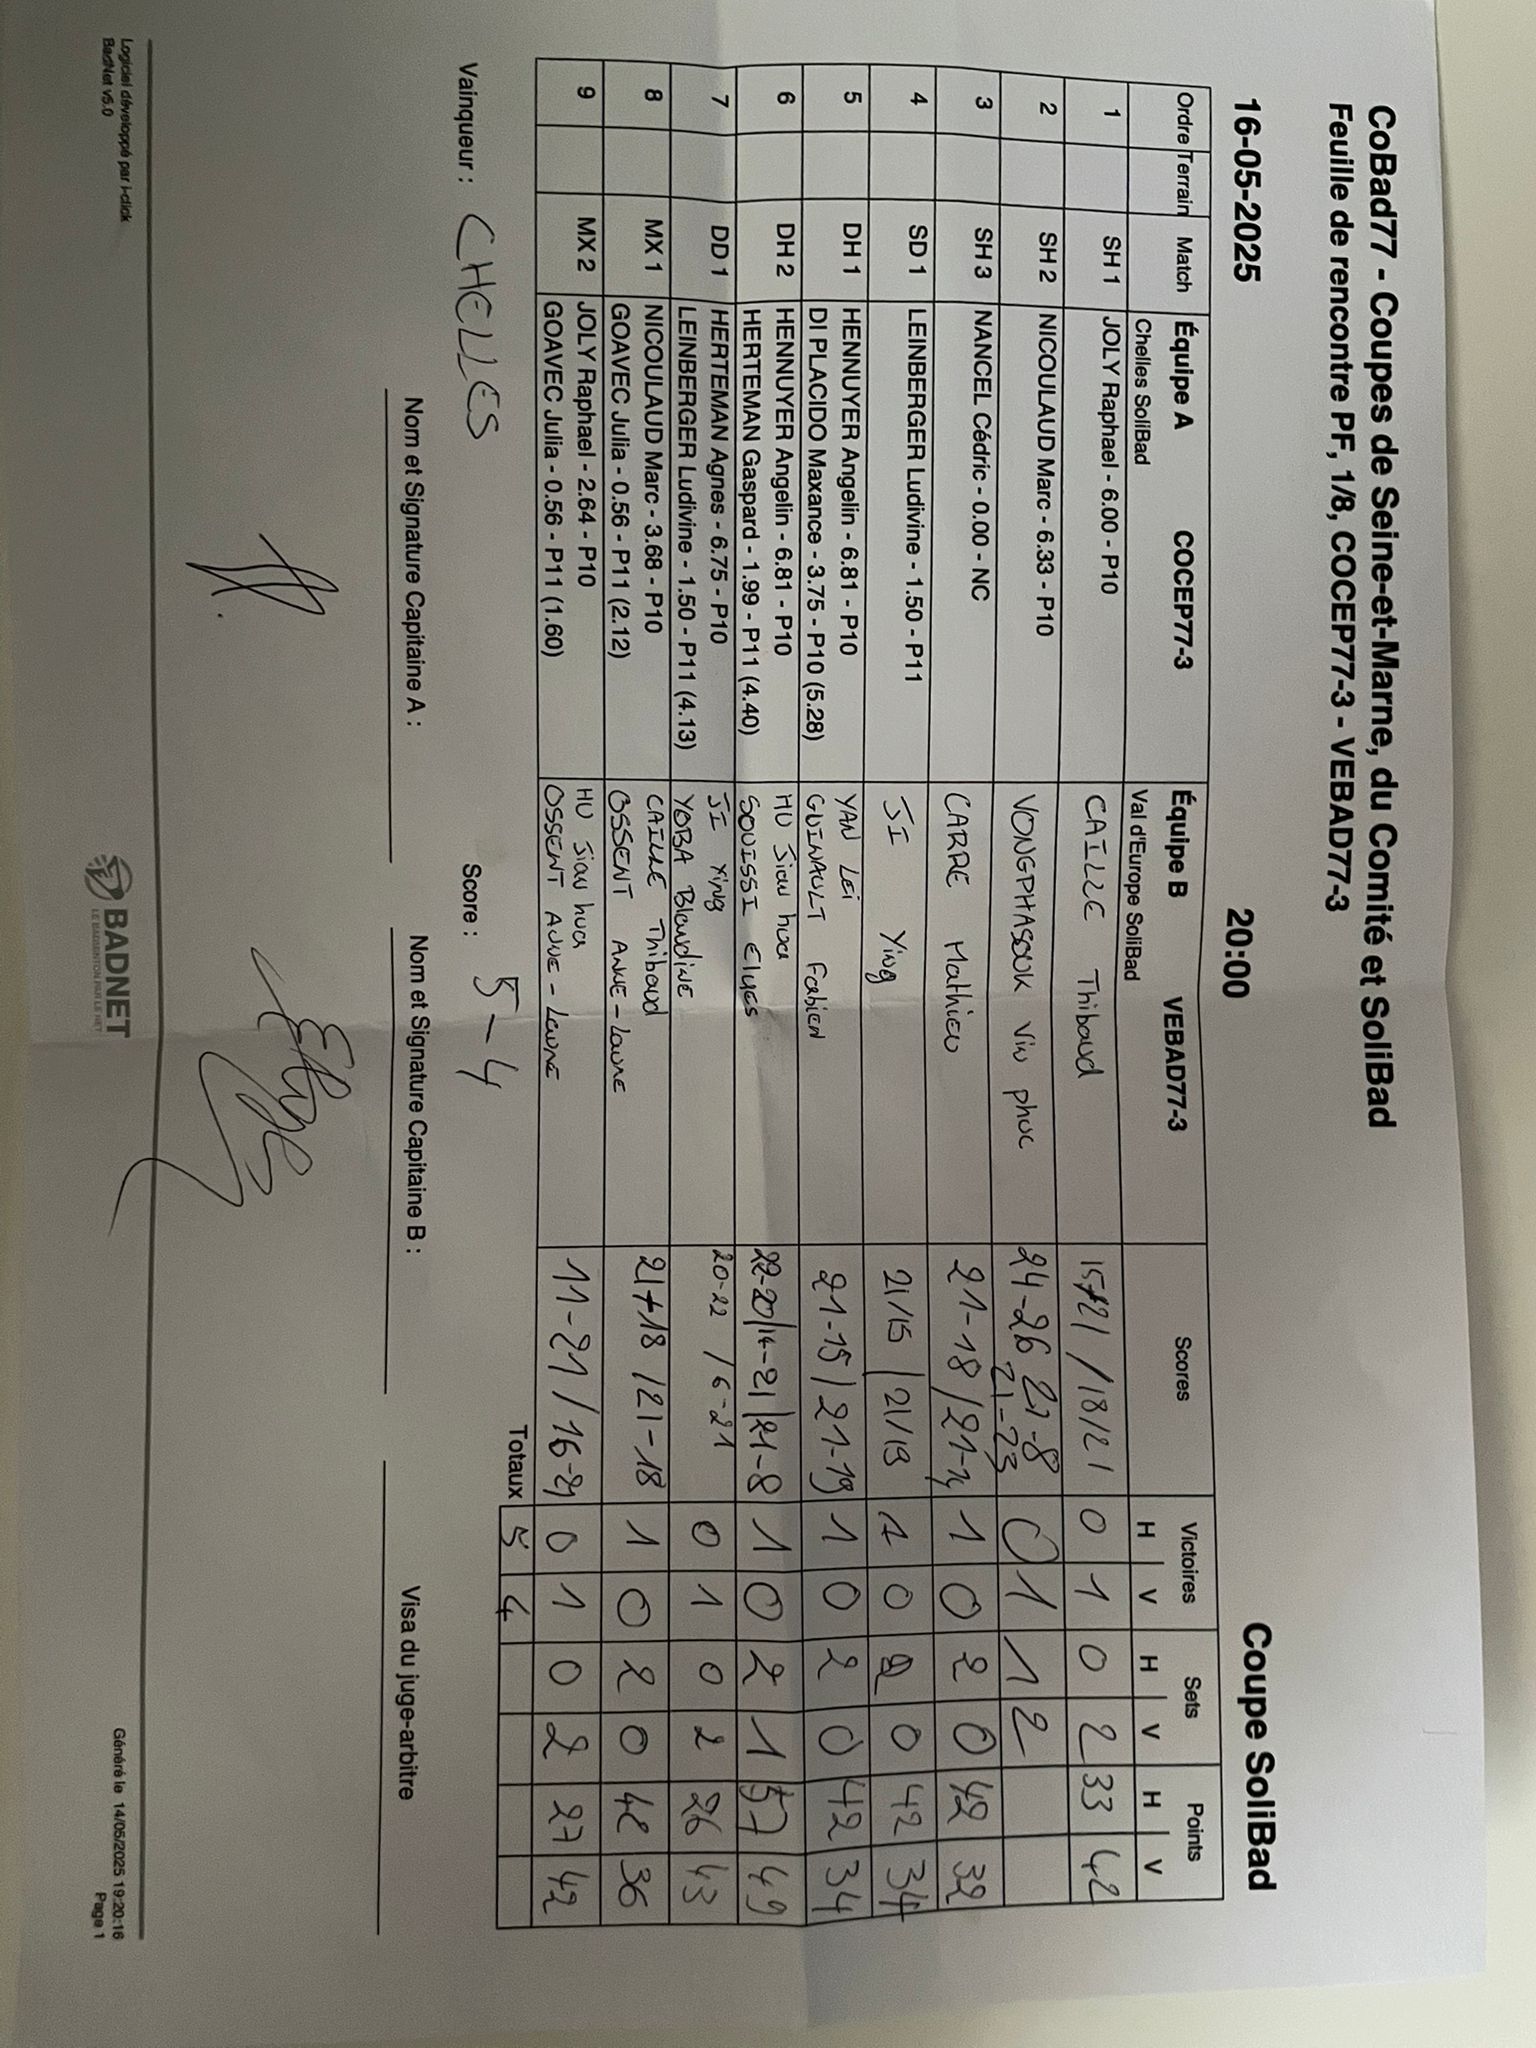 CoBad77 - Coupes de Seine-et-Marne, du Comité et SoliBad
Feuille de rencontre PF, 1/8, COCEP77-3 - VEBAD77-3
16-05-2025 20:00 Coupe SoliBad
Ordre Terrain Match Équipe A COCEP77-3 Équipe B VEBAD77-3 Scores Victoires Sets Points
Chelles SoliBad Val d'Europe SoliBad H V H V H V
1 SH 1 JOLY Raphael - 6.00 - P10 CAILLE Thibaud 15/21 / 18/21 0 1 0 2 33 42
2 SH 2 NICOULAUD Marc - 6.33 - P10 VONGPHASOUK Vin phuc 24-26 21-8 0 1 1 2
21-23
3 SH 3 NANCEL Cédric - 0.00 - NC CARRE Mathieu 21-18 / 21-14 1 0 2 0 42 32
4 SD 1 LEINBERGER Ludivine - 1.50 - P11 JI Ying 21/15 / 21/19 1 0 2 0 42 34
5 DH 1 HENNUYER Angelin - 6.81 - P10 YAN Lei 21-15 / 21-19 1 0 2 0 42 34
DI PLACIDO Maxance - 3.75 - P10 (5.28) GUINAULT Fabien
6 DH 2 HENNUYER Angelin - 6.81 - P10 HU Jiau hua 22-20 / 14-21 / 21-8 1 0 2 1 57 49
HERTEMAN Gaspard - 1.99 - P11 (4.40) SOUISSI Elyes
7 DD 1 HERTEMAN Agnes - 6.75 - P10 JI Ying 20-22 / 6-21 0 1 0 2 26 43
LEINBERGER Ludivine - 1.50 - P11 (4.13) YOBA Blandine
8 MX 1 NICOULAUD Marc - 3.68 - P10 CAILLE Thibaud 21-18 / 21-18 1 0 2 0 42 36
GOAVEC Julia - 0.56 - P11 (2.12) OSSENT ANNE-Laure
9 MX 2 JOLY Raphael - 2.64 - P10 HU Jiau hua 11-21 / 16-21 0 1 0 2 27 42
GOAVEC Julia - 0.56 - P11 (1.60) OSSENT ANNE-Laure
Totaux 5 4
Vainqueur : CHELLES Score : 5-4
Nom et Signature Capitaine A : Nom et Signature Capitaine B : Visa du juge-arbitre
Logiciel développé par i-click
BadNet v5.0
BADNET
LE BADMINTON SUR LE NET
Généré le 14/05/2025 19:20:16
Page 1